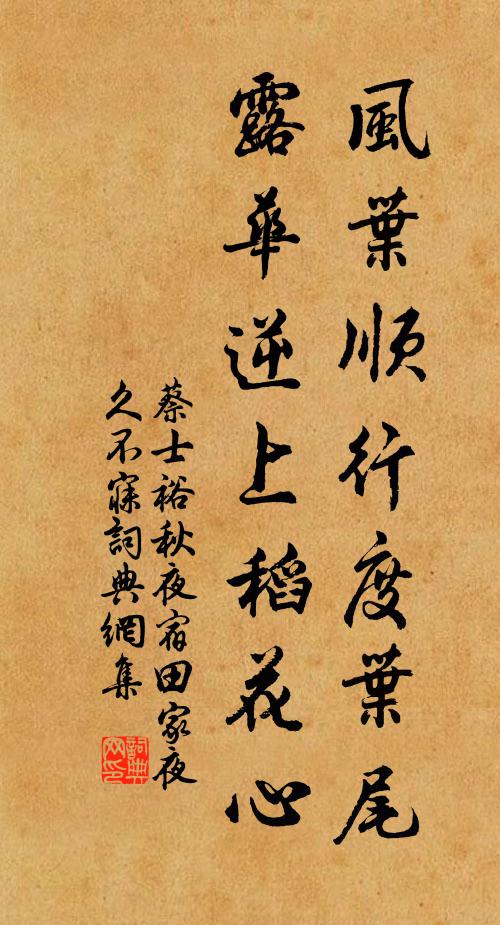 風葉順行度葉尾
露華逆上稻花心
蔡士裕秋夜宿田家夜
久不寐詞典網集
詞典
网印